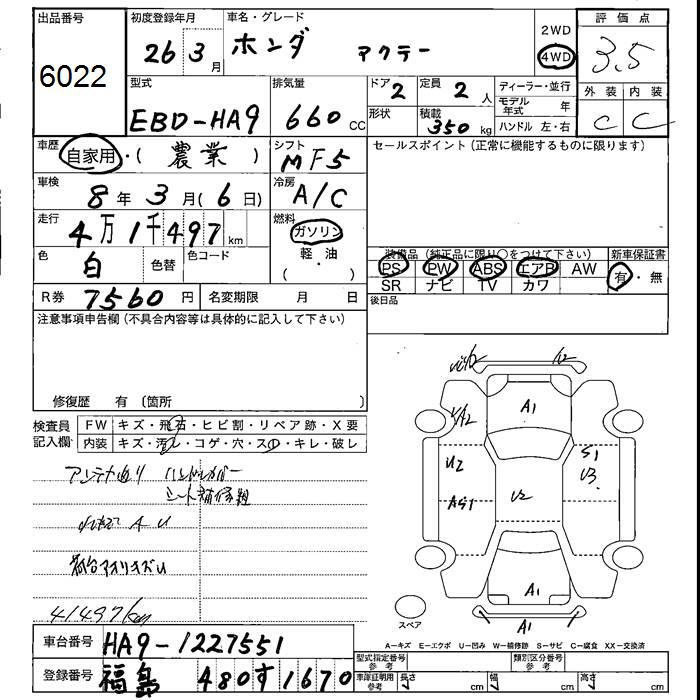 出品番号 初度登録年月 車名・グレード 2WD 評価点
6022 26 3月 ホンダ アクテー 4WD 3.5
型式 排気量 ドア 定員 ディーラー・並行 外装 内装
EBD-HA9 660cc 2 2人 モデル年式 年 C C
形状 積載 350kg ハンドル 左・右
車歴 自家用・(農業) シフト MF5 セールスポイント(正常に機能するものに限ります)
車検 8年3月(6日) 冷房 A/C
走行 4万1千497km 燃料 ガソリン
色 白 色替 色コード (軽・油)
装備品(純正品に限り○をつけて下さい) 新車保証書
PS PW ABS エアB AW 有・無
SR ナビ TV カワ
R券 7560円 名変期限 月 日 後日品
注意事項申告欄(不具合内容等は具体的に記入して下さい)
修復歴 有(箇所 )
検査員記入欄 FW キズ・飛石・ヒビ割・リペア跡・X要
内装 キズ・汚レ・コゲ・穴・スレ・キレ・破レ
アンテナ曲り ハンドルカバー
シート補修跡
A U
荷台アオリキズU
41497km
A2 A1 S1
U2 U3
AS1 U2
A1
A1
スペア
A−キズ E−エクボ U−凹み W−補修跡 S−サビ C−腐食 XX−交換済
車台番号 HA9-1227551
型式指定番号 参考 類別区分番号 参考
登録番号 福島 480す1670
車庫証明用参考 長さ cm 幅 cm 高さ cm